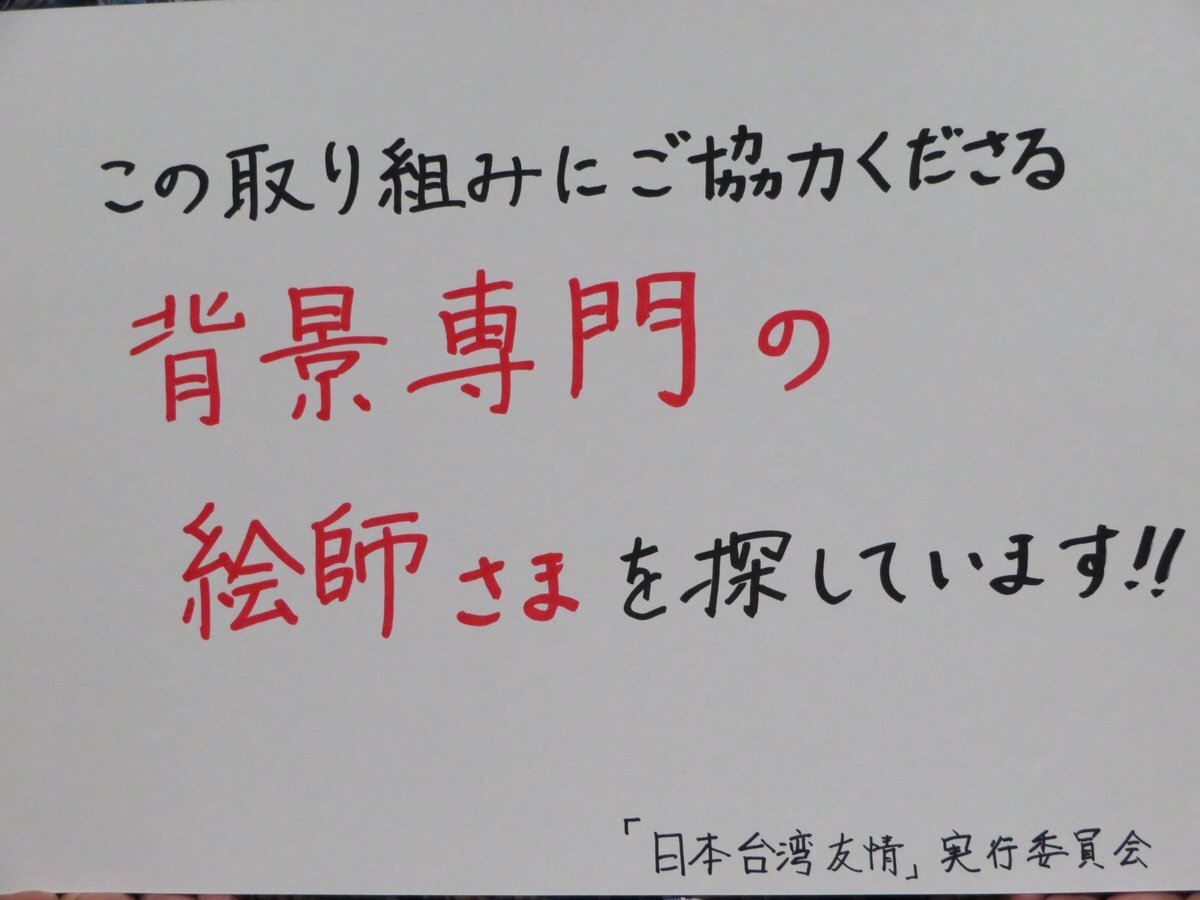 この取り組みにご協力くださる
背景専門の
絵師さまを探しています!!
「日本台湾友情」実行委員会